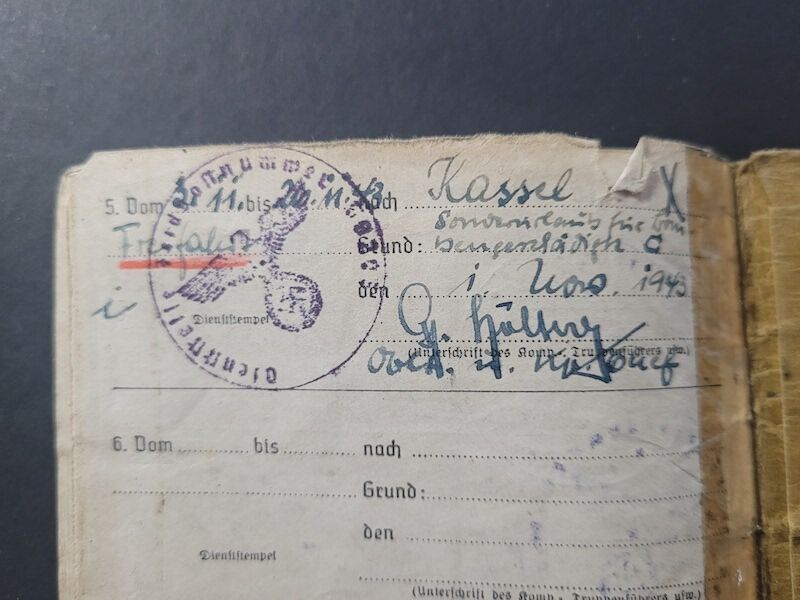 5. Vom 3. 11. bis 20. 11. 43 nach Kassel
Sonderurlaub für Bom-
Freifahrt Grund: bengeschädigte C
den 1. Nov. 1943
Dienststempel
(Unterschrift des Komp.-, Truppenführers usw.)
Oblt. u. Kp. Chef
Dienststelle Feldpostnummer
6. Vom bis
nach
Grund:
den
Dienststempel
(Unterschrift des Komp.-, Truppenführers usw.)